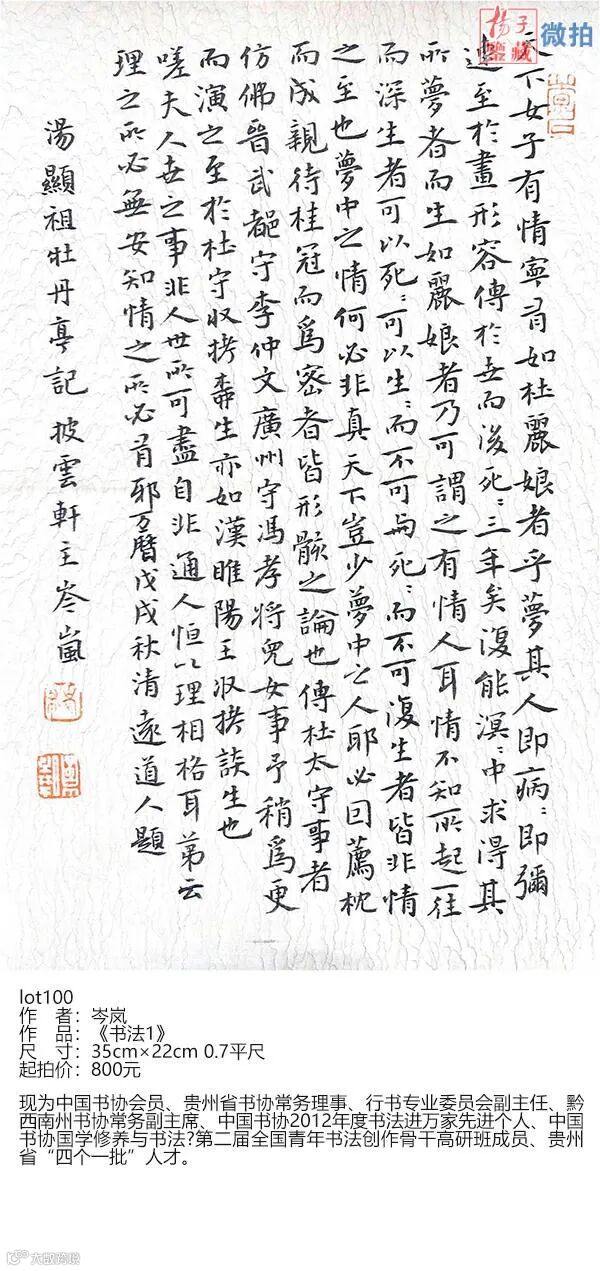 揚子鑒藏
微拍
天下女子有情寧有如杜麗娘者乎夢其人即病:即彌
連至於畫形容傳於世而後死:三年矣復能溟:中求得其
所夢者而生如麗娘者乃可謂之有情人耳情不知所起一往
而深生者可以死:可以生:而不可与死:而不可復生者皆非情
之至也夢中之情何必非真天下豈少夢中之人耶必因薦枕
而成親待桂冠而為密者皆形骸之論也傳杜太守事者
仿佛晉武都守李仲文廣州守馮孝將兒女事予稍為更
而演之至於杜守収拷柳生亦如漢睢陽王収拷談生也
嗟夫人世之事非人世所可盡自非通人恒以理相格耳第云
理之所必無安知情之所必有邪万曆戊戌秋清遠道人題
湯顯祖牡丹亭記 披雲軒主岑嵐
lot100
作 者:岑岚
作 品:《书法1》
尺 寸:35cm×22cm 0.7平尺
起拍价:800元
现为中国书协会员、贵州省书协常务理事、行书专业委员会副主任、黔
西南州书协常务副主席、中国书协2012年度书法进万家先进个人、中国
书协国学修养与书法?第二届全国青年书法创作骨干高研班成员、贵州
省“四个一批”人才。
大数跨境